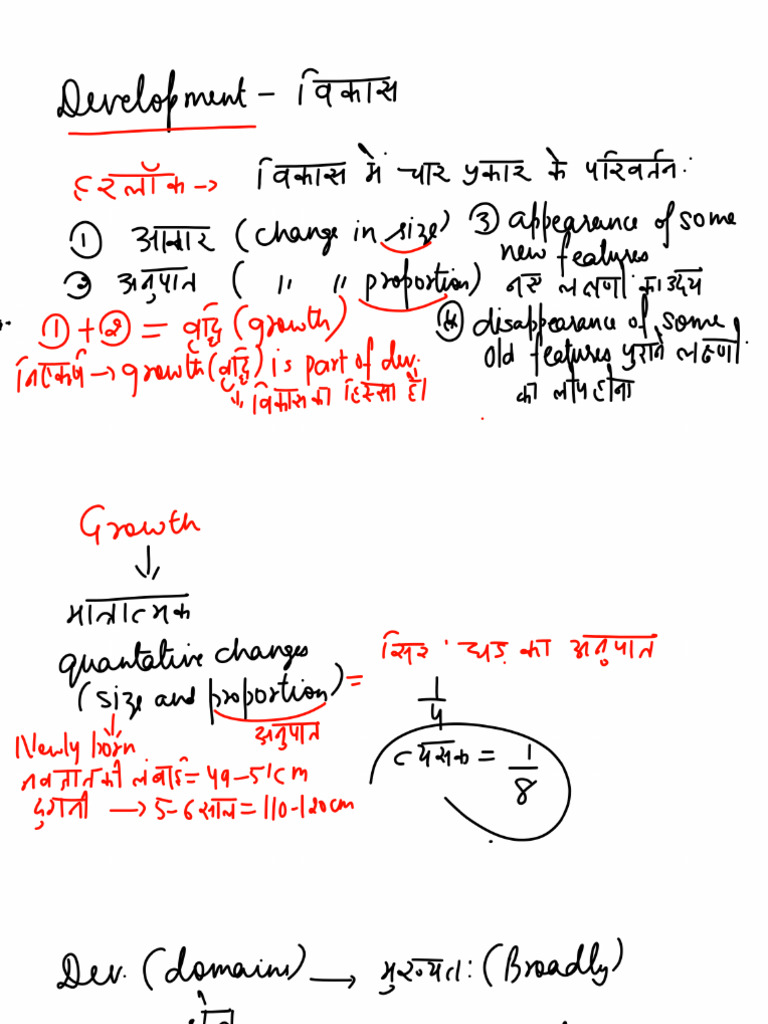 Development - विकास
हरलॉक -> विकास में चार प्रकार के परिवर्तन:
① आकार (change in size)
② अनुपात ( " " proportion)
③ appearance of some
new features
नए लक्षणों का उदय
④ disappearance of some
old features पुराने लक्षणों
का लोप होना
① + ② = वृद्धि (growth)
निष्कर्ष → growth (वृद्धि) is part of dev.
विकास का हिस्सा है।
Growth
↓
मात्रात्मक
quantative changes
(size and proportion) =
अनुपात
सिर : धड़ का अनुपात
1/4
वयस्क = 1/8
Newly born
नवजात की लंबाई = 49-51cm
दुगनी → 5-6 साल = 110-120cm
Dev. (domains) → मुख्यत: (Broadly)